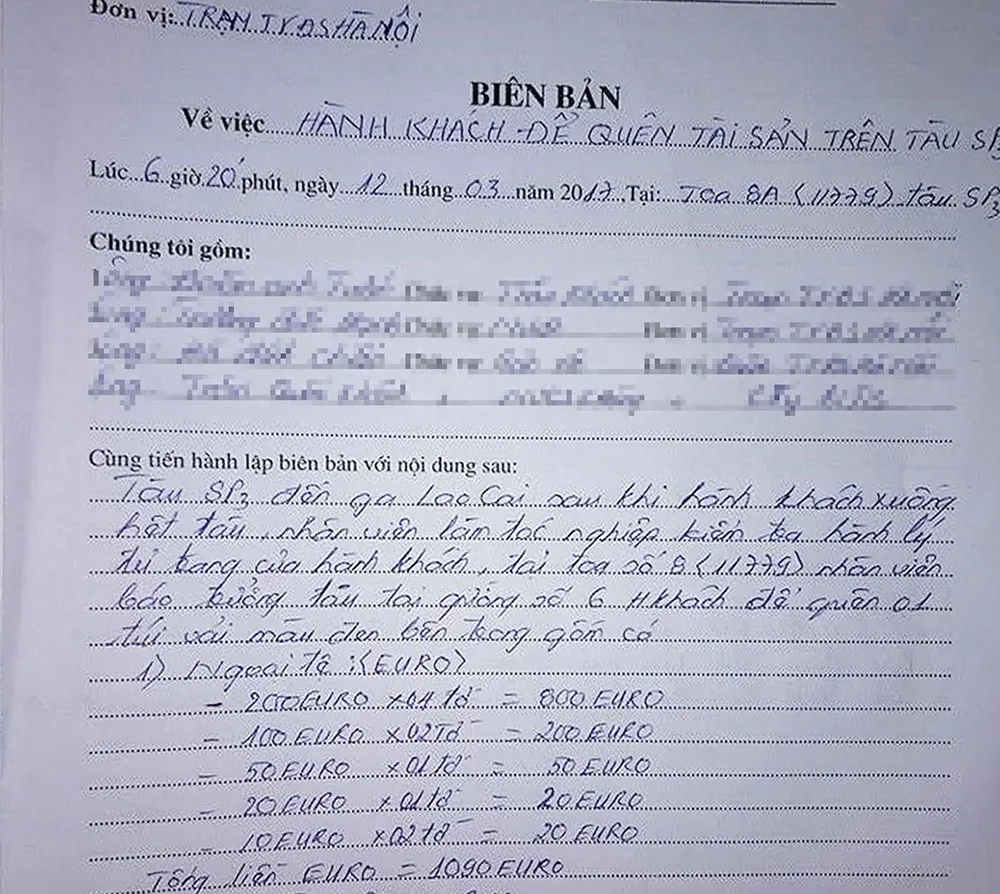 Đơn vị:...TRẠM TVĐS HÀ NỘI
BIÊN BẢN
Về việc.....HÀNH KHÁCH ĐỂ QUÊN TÀI SẢN TRÊN TÀU SP3
Lúc...6...giờ.20.phút, ngày...12...tháng...03...năm 2017.,Tại:...Toa 8A (11779) tàu SP3
Chúng tôi gồm:
Cùng tiến hành lập biên bản với nội dung sau:
Tàu SP3 đến ga Lao Cai sau khi hành khách xuống
hết tàu, nhân viên làm tác nghiệp kiểm tra hành lý
tư trang của hành khách, tại toa số 8 (11779) nhân viên
báo trưởng tàu tại giường số 6 H khách để quên 01
túi vải màu đen bên trong gồm có
1) Ngoại tệ : (EURO)
- 200 EURO x 04 tờ = 800 EURO
- 100 EURO x 02 tờ = 200 EURO
- 50 EURO x 01 tờ = 50 EURO
- 20 EURO x 01 tờ = 20 EURO
- 10 EURO x 02 tờ = 20 EURO
Tổng tiền EURO = 1090 EURO